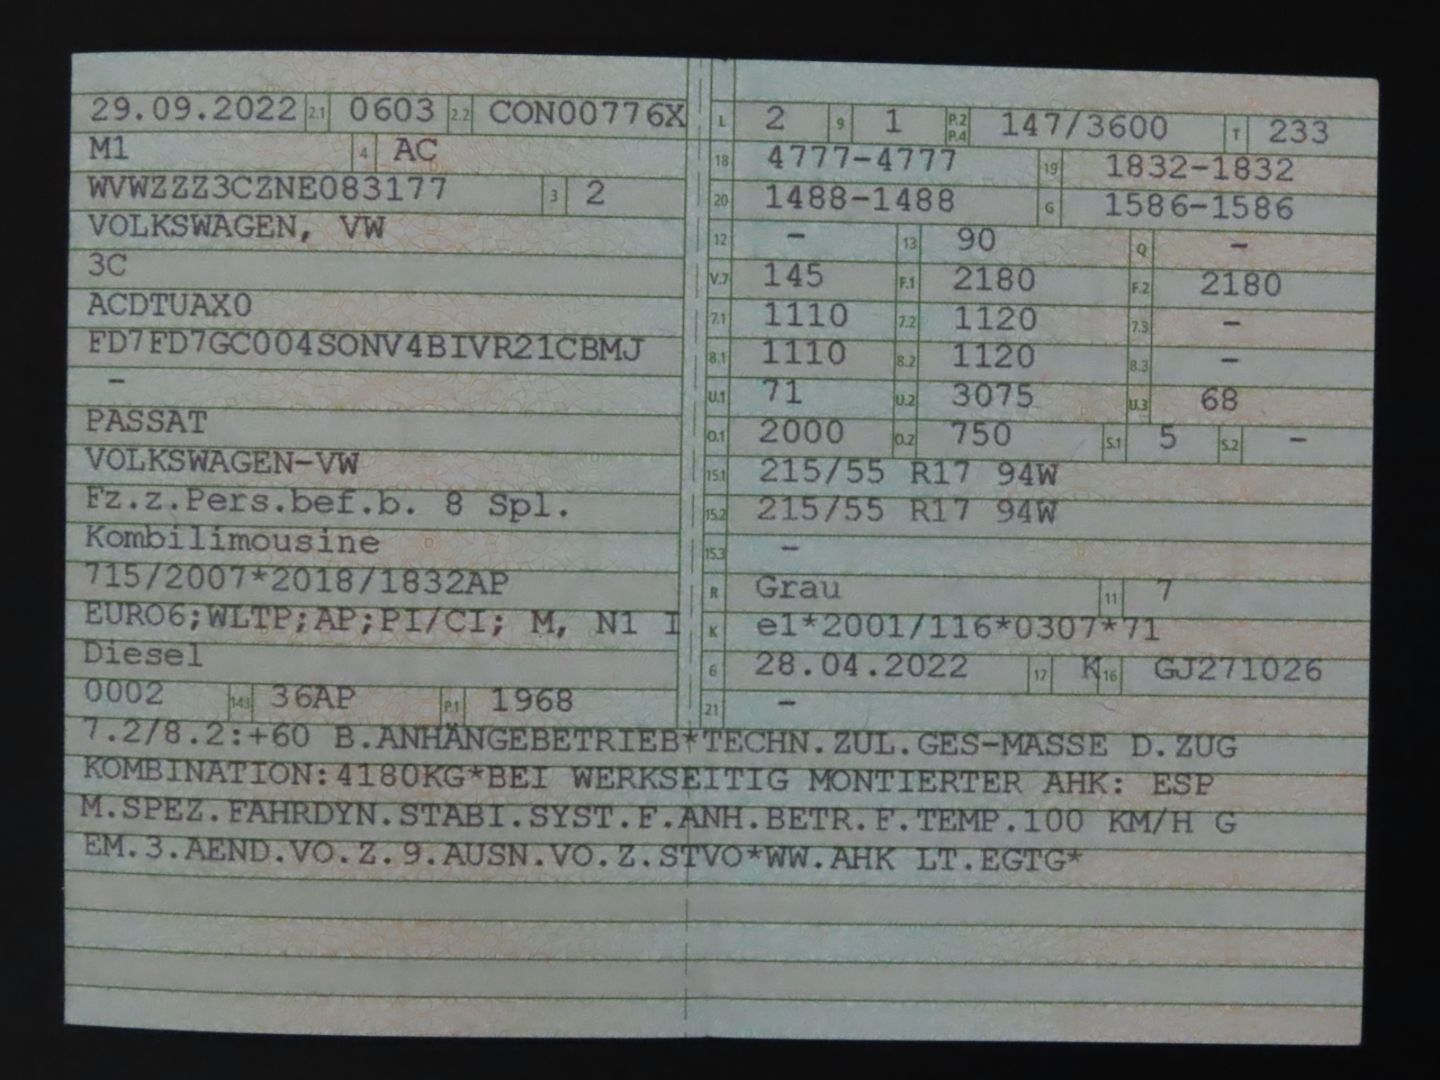 29.09.2022 2.1 0603 2.2 CON00776X
M1 4 AC
WVWZZZ3CZNE083177 3 2
VOLKSWAGEN, VW
3C
ACDTUAX0
FD7FD7GC004SONV4BIVR21CBMJ
-
PASSAT
VOLKSWAGEN-VW
Fz.z.Pers.bef.b. 8 Spl.
Kombilimousine
715/2007*2018/1832AP
EURO6;WLTP;AP;PI/CI; M, N1 I
Diesel
0002 14.1 36AP P.1 1968
L 2 9 1 P.2 P.4 147/3600 T 233
18 4777-4777 19 1832-1832
20 1488-1488 G 1586-1586
12 - 13 90 Q -
V.7 145 F.1 2180 F.2 2180
7.1 1110 7.2 1120 7.3 -
8.1 1110 8.2 1120 8.3 -
U.1 71 U.2 3075 U.3 68
O.1 2000 O.2 750 S.1 5 S.2 -
15.1 215/55 R17 94W
15.2 215/55 R17 94W
15.3 -
R Grau 11 7
K e1*2001/116*0307*71
6 28.04.2022 17 K 16 GJ271026
21 -
7.2/8.2:+60 B.ANHÄNGEBETRIEB*TECHN.ZUL.GES-MASSE D.ZUG
KOMBINATION:4180KG*BEI WERKSEITIG MONTIERTER AHK: ESP
M.SPEZ.FAHRDYN.STABI.SYST.F.ANH.BETR.F.TEMP.100 KM/H G
EM.3.AEND.VO.Z.9.AUSN.VO.Z.STVO*WW.AHK LT.EGTG*